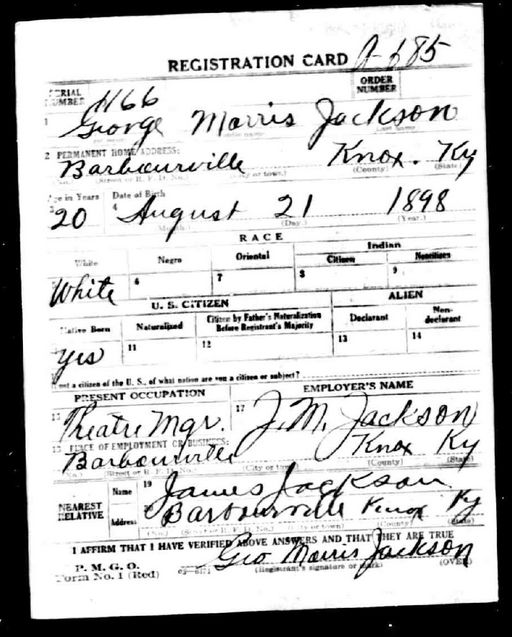 REGISTRATION CARD A-685
SERIAL NUMBER 1166 ORDER NUMBER
1 George Morris Jackson
2 PERMANENT HOME ADDRESS:
Barbourville Knox. Ky
(Street or R. F. D. No.) (City or town) (County) (State)
Age in Years Date of Birth
3 20 4 August 21 1898
(Month.) (Day.) (Year.)
RACE
White Negro Oriental Indian
Citizen Noncitizen
White 6 7 8 9
U. S. CITIZEN ALIEN
Native Born Naturalized Citizen by Father's Naturalization Before Registrant's Majority Declarant Non-declarant
Yes 11 12 13 14
If not a citizen of the U. S., of what nation are you a citizen or subject?
PRESENT OCCUPATION EMPLOYER'S NAME
Theatre Mgr. 17 J. M. Jackson
PLACE OF EMPLOYMENT OR BUSINESS:
Barbourville Knox Ky
(No.) (Street or R. F. D. No.) (City or town) (County) (State)
NEAREST RELATIVE Name 19 James Jackson
Address Barbourville Knox Ky
(No.) (Street or R. F. D. No.) (City or town) (County) (State)
I AFFIRM THAT I HAVE VERIFIED ABOVE ANSWERS AND THAT THEY ARE TRUE
P. M. G. O.
Form No. 1 (Red) Geo Morris Jackson
(Registrant's signature or mark) (OVER)